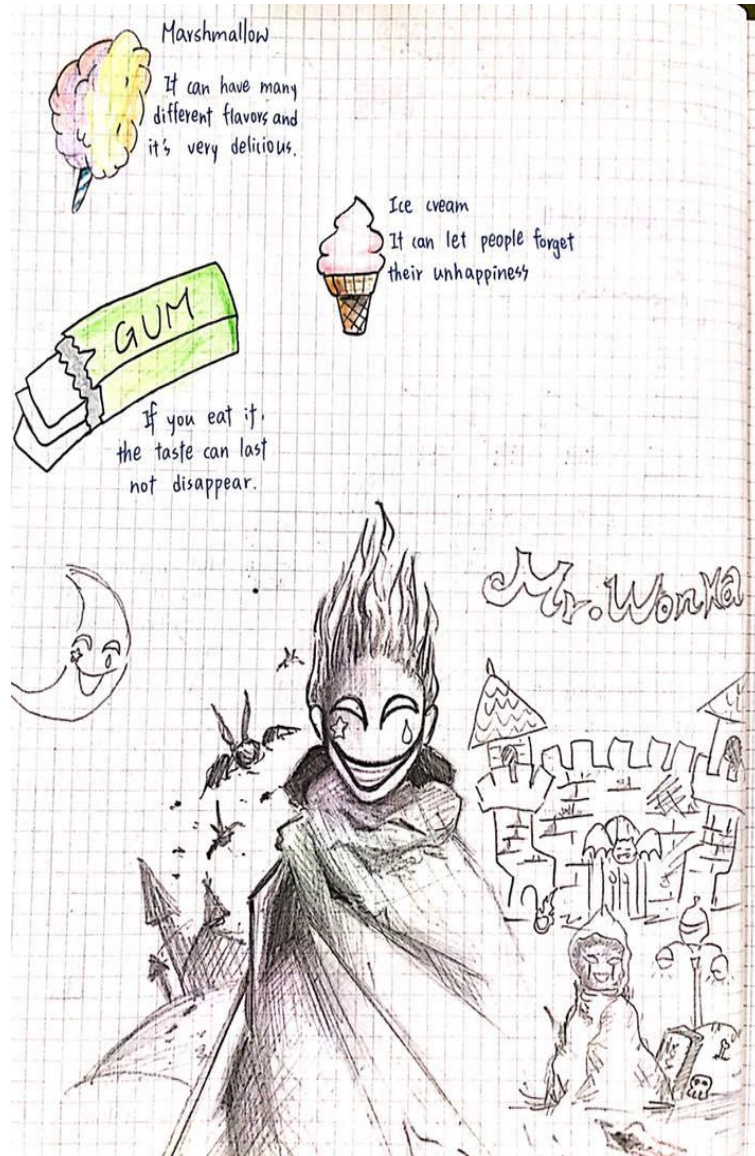 Marshmallow
It can have many
different flavors and
it's very delicious.
Ice cream
It can let people forget
their unhappiness
GUM
If you eat it,
the taste can last
not disappear.
Mr. Wonka